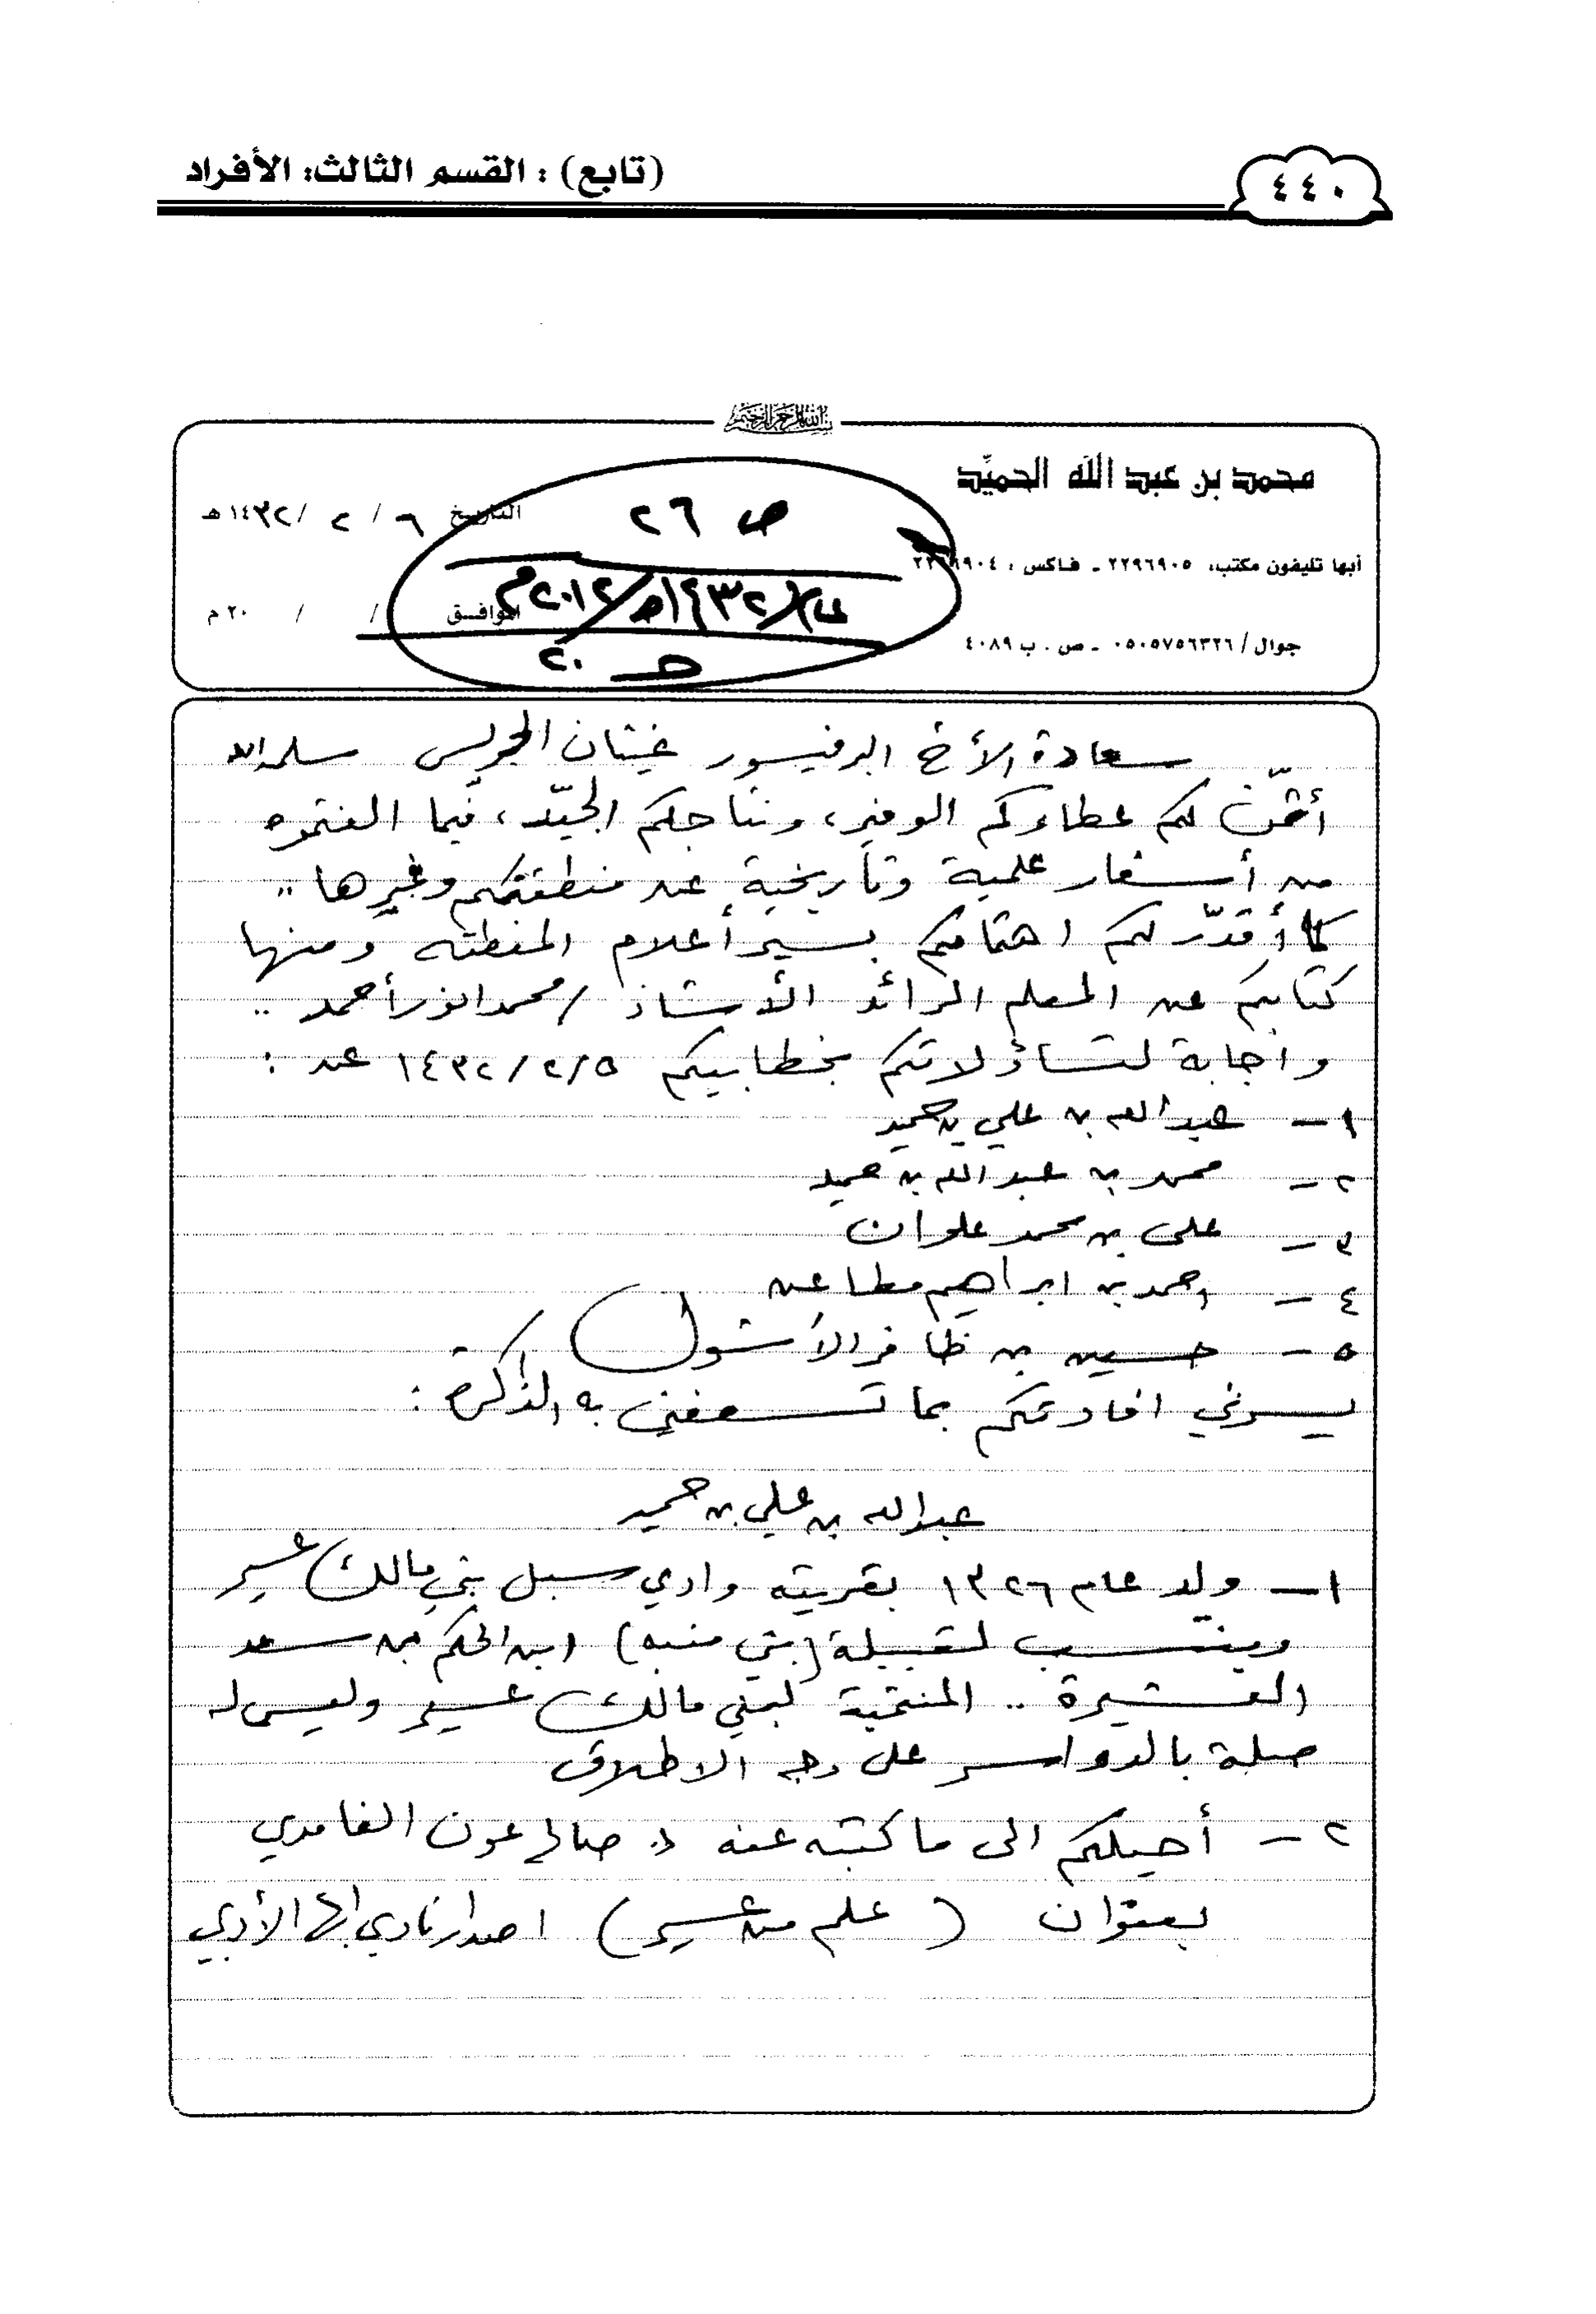 ٤٤٠
(تابع) : القسم الثالث: الأفراد
بسم الله الرحمن الرحيم
محمد بن عبد الله الحميّد
أبها تليفون مكتب: ٢٢٩٦٩٠٥ - فاكس : ٢٢٩٦٩٠٤
جوال / ٠٥٠٥٧٥٦٣٢٦ - ص . ب ٤٠٨٩
التاريخ ٦ / ٢ / ١٤٣٢هـ
الموافق / / ٢٠ م
ص ٢٦
١٤٣٢هـ/٢٠١٢م
حـ ٢٠
سعادة الأخ البرفيسور غيثان الجريس سلمه الله
أثمّن لكم عطاءكم الوفير، ونتاجكم الجيّد، فيما الفتموه
من أسفار علمية وتأريخية عن منطقتكم وغيرها ..
كما أقدّر لكم اهتمامكم بسير أعلام المنطقة ومنها
كتابكم عن المعلم الرائد الأستاذ / محمد انور أحمد ..
واجابة لتساؤلاتكم بخطابيكم ٥/٢/١٤٣٢ عن :
١ - عبدالله بن علي بن حميد
٢ - محمد بن عبدالله بن حميد
٣ - علي بن محمد علوان
٤ - احمد بن ابراهيم مطاعن
٥ - حسين بن ظافر الأشول
يسرني افادتكم بما تسعفني به الذاكرة :
عبدالله بن علي بن حميد
١ - ولد عام ١٣٢٦ بقريته وادي سبل بني مالك عسير
وينتسب لقبيلة (بني منبه) ابن الحكم بن سعد
العشيرة .. المنتمية لبني مالك عسير وليس له
صلة بالدواسر على وجه الاطلاق
٢ - أحيلكم الى ما كتبه عنه د. صالح عون الغامدي
بعنوان ( علم من عسير ) اصدار نادي ابها الأدبي